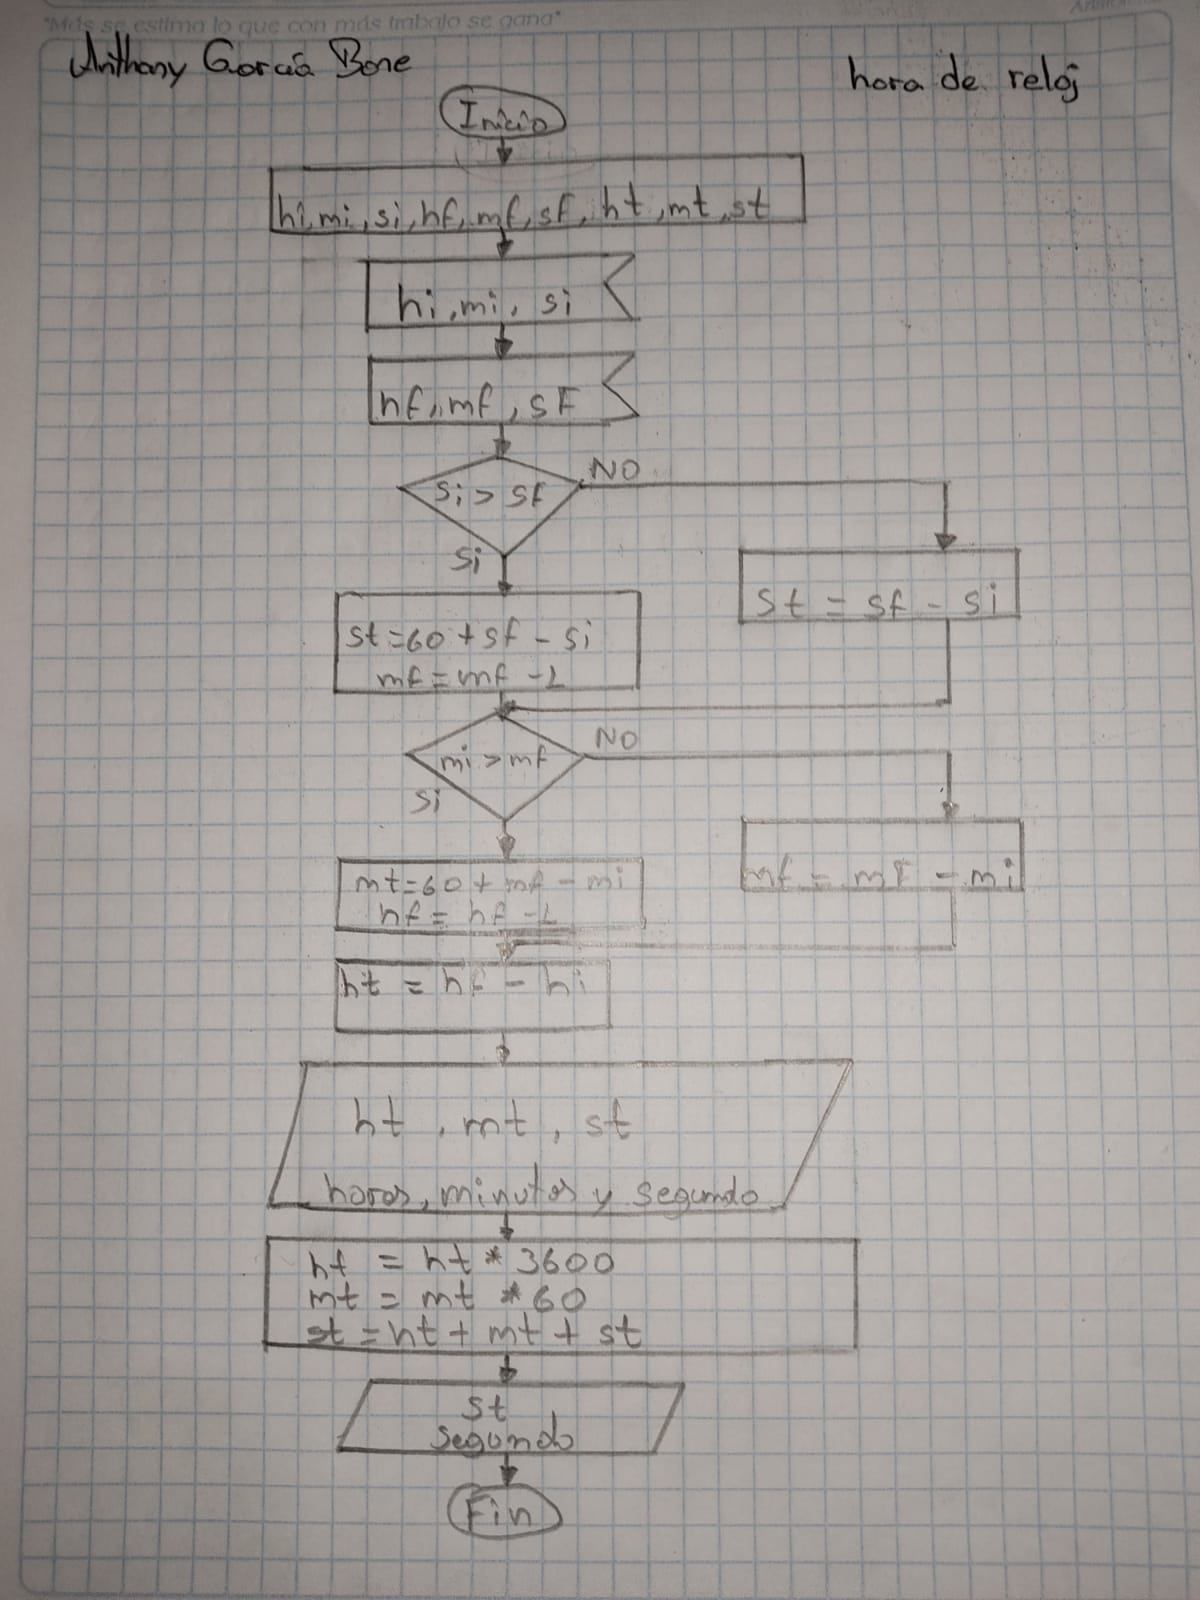 "Más se estima lo que con más trabajo se gana"
Anthony García Bone
hora de reloj
Inicio
hi, mi, si, hf, mf, sf, ht, mt, st
hi, mi, si
hf, mf, sF
si > sf
NO
Si
st = sf - si
st=60 + sf - si
mf = mf - 1
mi > mf
NO
Si
mf = mF - mi
mt=60 + mf - mi
hf = hf - 1
ht = hf - hi
ht, mt, st
horas, minutos y segundo
ht = ht * 3600
mt = mt * 60
st = ht + mt + st
st
segundo
Fin